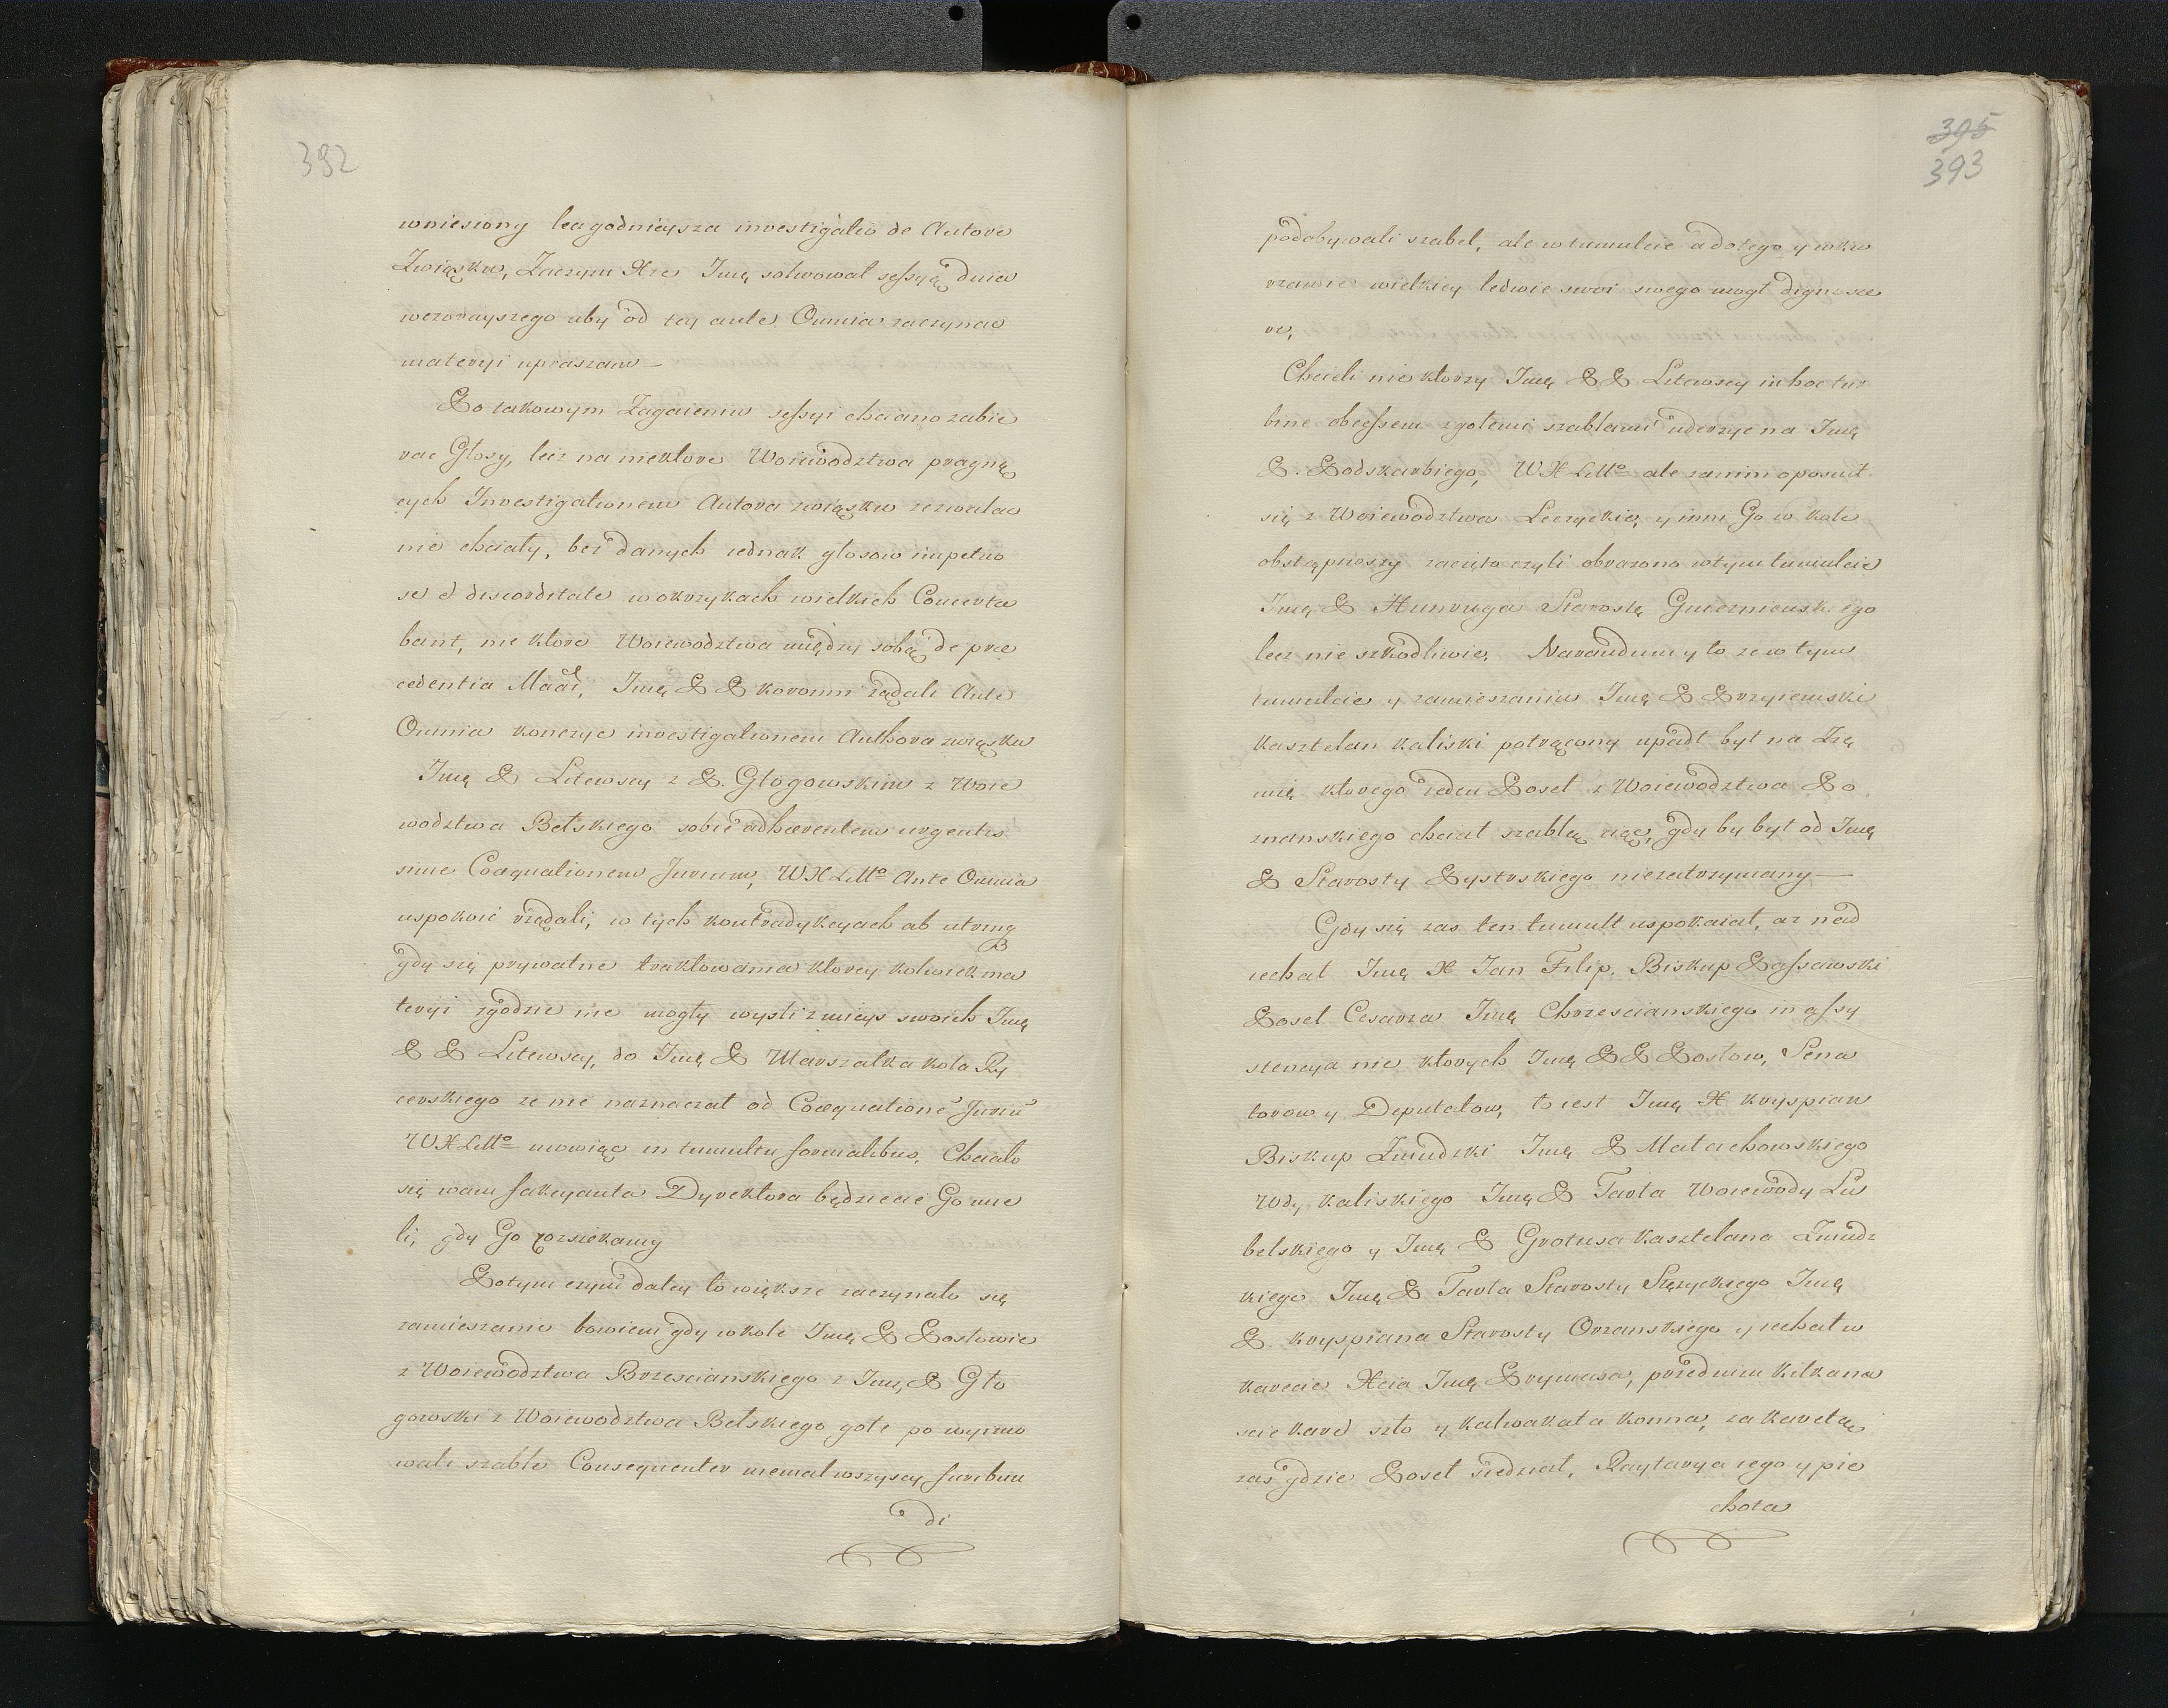 392
wniesiony łagodnieysza investigatio de Autore
Związku, Zaczym Xże Jmę solwował sessyią dnia
wczorayszego aby od tey ante Omnia zaczynać
materyi upraszam —
Po takowym Zagaieniu sessyi chciano zabie
rac Głosy, lecz na niektore Woiewodztwa pragną
cych Investigationem Autora związku zezwalac
nie chciały, bez danych iednak głosow impetuo
se et discorditate w okrzykach wielkich Concerta
bant, niektore Woiewodztwa między sobą de prae
cedentia Maał, Jmę P P koronni żądali Ante
Omnia konczyc investigationem Authora związku
Jmę P Litewscy z P. Głogowskim z Woie
wodztwa Bełskiego sobie adhaerentem urgentis
sime Coaequationem Jurium, WX Litt⁰ Ante Omnia
uspokoić rządali, w tych kontradykcyach ab utrinq
gdy się prywatne traktowania ktorey kolwiek ma
teryi zgodzie nie mogły wyszli z mieysc swoich Jmę
P P Litewscy, do Jmę P Marszałka koła Ry
cerskiego ze nie naznaczał od Coaequatione Juriu
WX Litt⁰ mowiąc in tumultu formalibus, Chciało
się wam fakcyanta Dyrektora będziecie Go mie
li, gdy Go rozsiekamy
Potym czym daley to większe zaczynało się
zamieszanie bowiem gdy w kole Jmę P Posłowie
z Woiewodztwa Brzescianskiego z Jmę P Gło
gowski z Woiewodztwa Bełskiego gołe powyimo
wali szable Consequenter niemal wszyscy furibun
di
395
393
podobywali szabel, ale w tumulcie a do tego y w ku
rzawie wielkiey ledwie swoi swego mogł dignosce
re,
Chcieli niektorzy Jmę P P Litewscy in hoc tur
bine obcessem z gołemi szablami uderzyc na Jmę
P. Podskarbiego, WX Litt⁰ ale za nim oposuit
się z Woiewodztwa Łeczyckie, y inni Go w kole
obstąpiwszy zacięto czyli obrazono w tym tumulcie
Jmę P Humruga Starostę Gnieznienskiego
lecz nie szkodliwie, Narandum y to ze w tym
tumulcie y zamieszaniu Jmę P Przyiemski
kasztelan kaliski potrącony upadł był na Zie
mię ktorego ieden Poseł z Woiewodztwa Po
znanskiego chciał szablą ciąc, gdy by był od Jmę
P Starosty Pystrskiego niezatrzymany —
Gdy się zas ten tumult uspokaiał, az nad
iechał Jmę X Jan Filip, Biskup Passawski
Poseł Cesarza Jmę Chrzescianskiego in assy
stencya niektorych Jmę P P Posłow, Sena
torow y Deputatow, to iest Jmę X kryspian
Biskup Zmudzki Jmę P Małachowskiego
Wdy kaliskiego Jmę P Tarła Woiewody Lu
belskiego y Jmę P Grotusa kasztelana Zmudz
kiego Jmę P Tarła Starosty Stęzyckiego Jmę
P. kryspiana Starosty Orzanskiego y iechał w
karecie Xcia Jmę Prymasa, przed nim kilkana
scie karet szło y kalwakata konna, za karetą
zas gdzie Poseł siedział, Raytarya iego y pie
chota